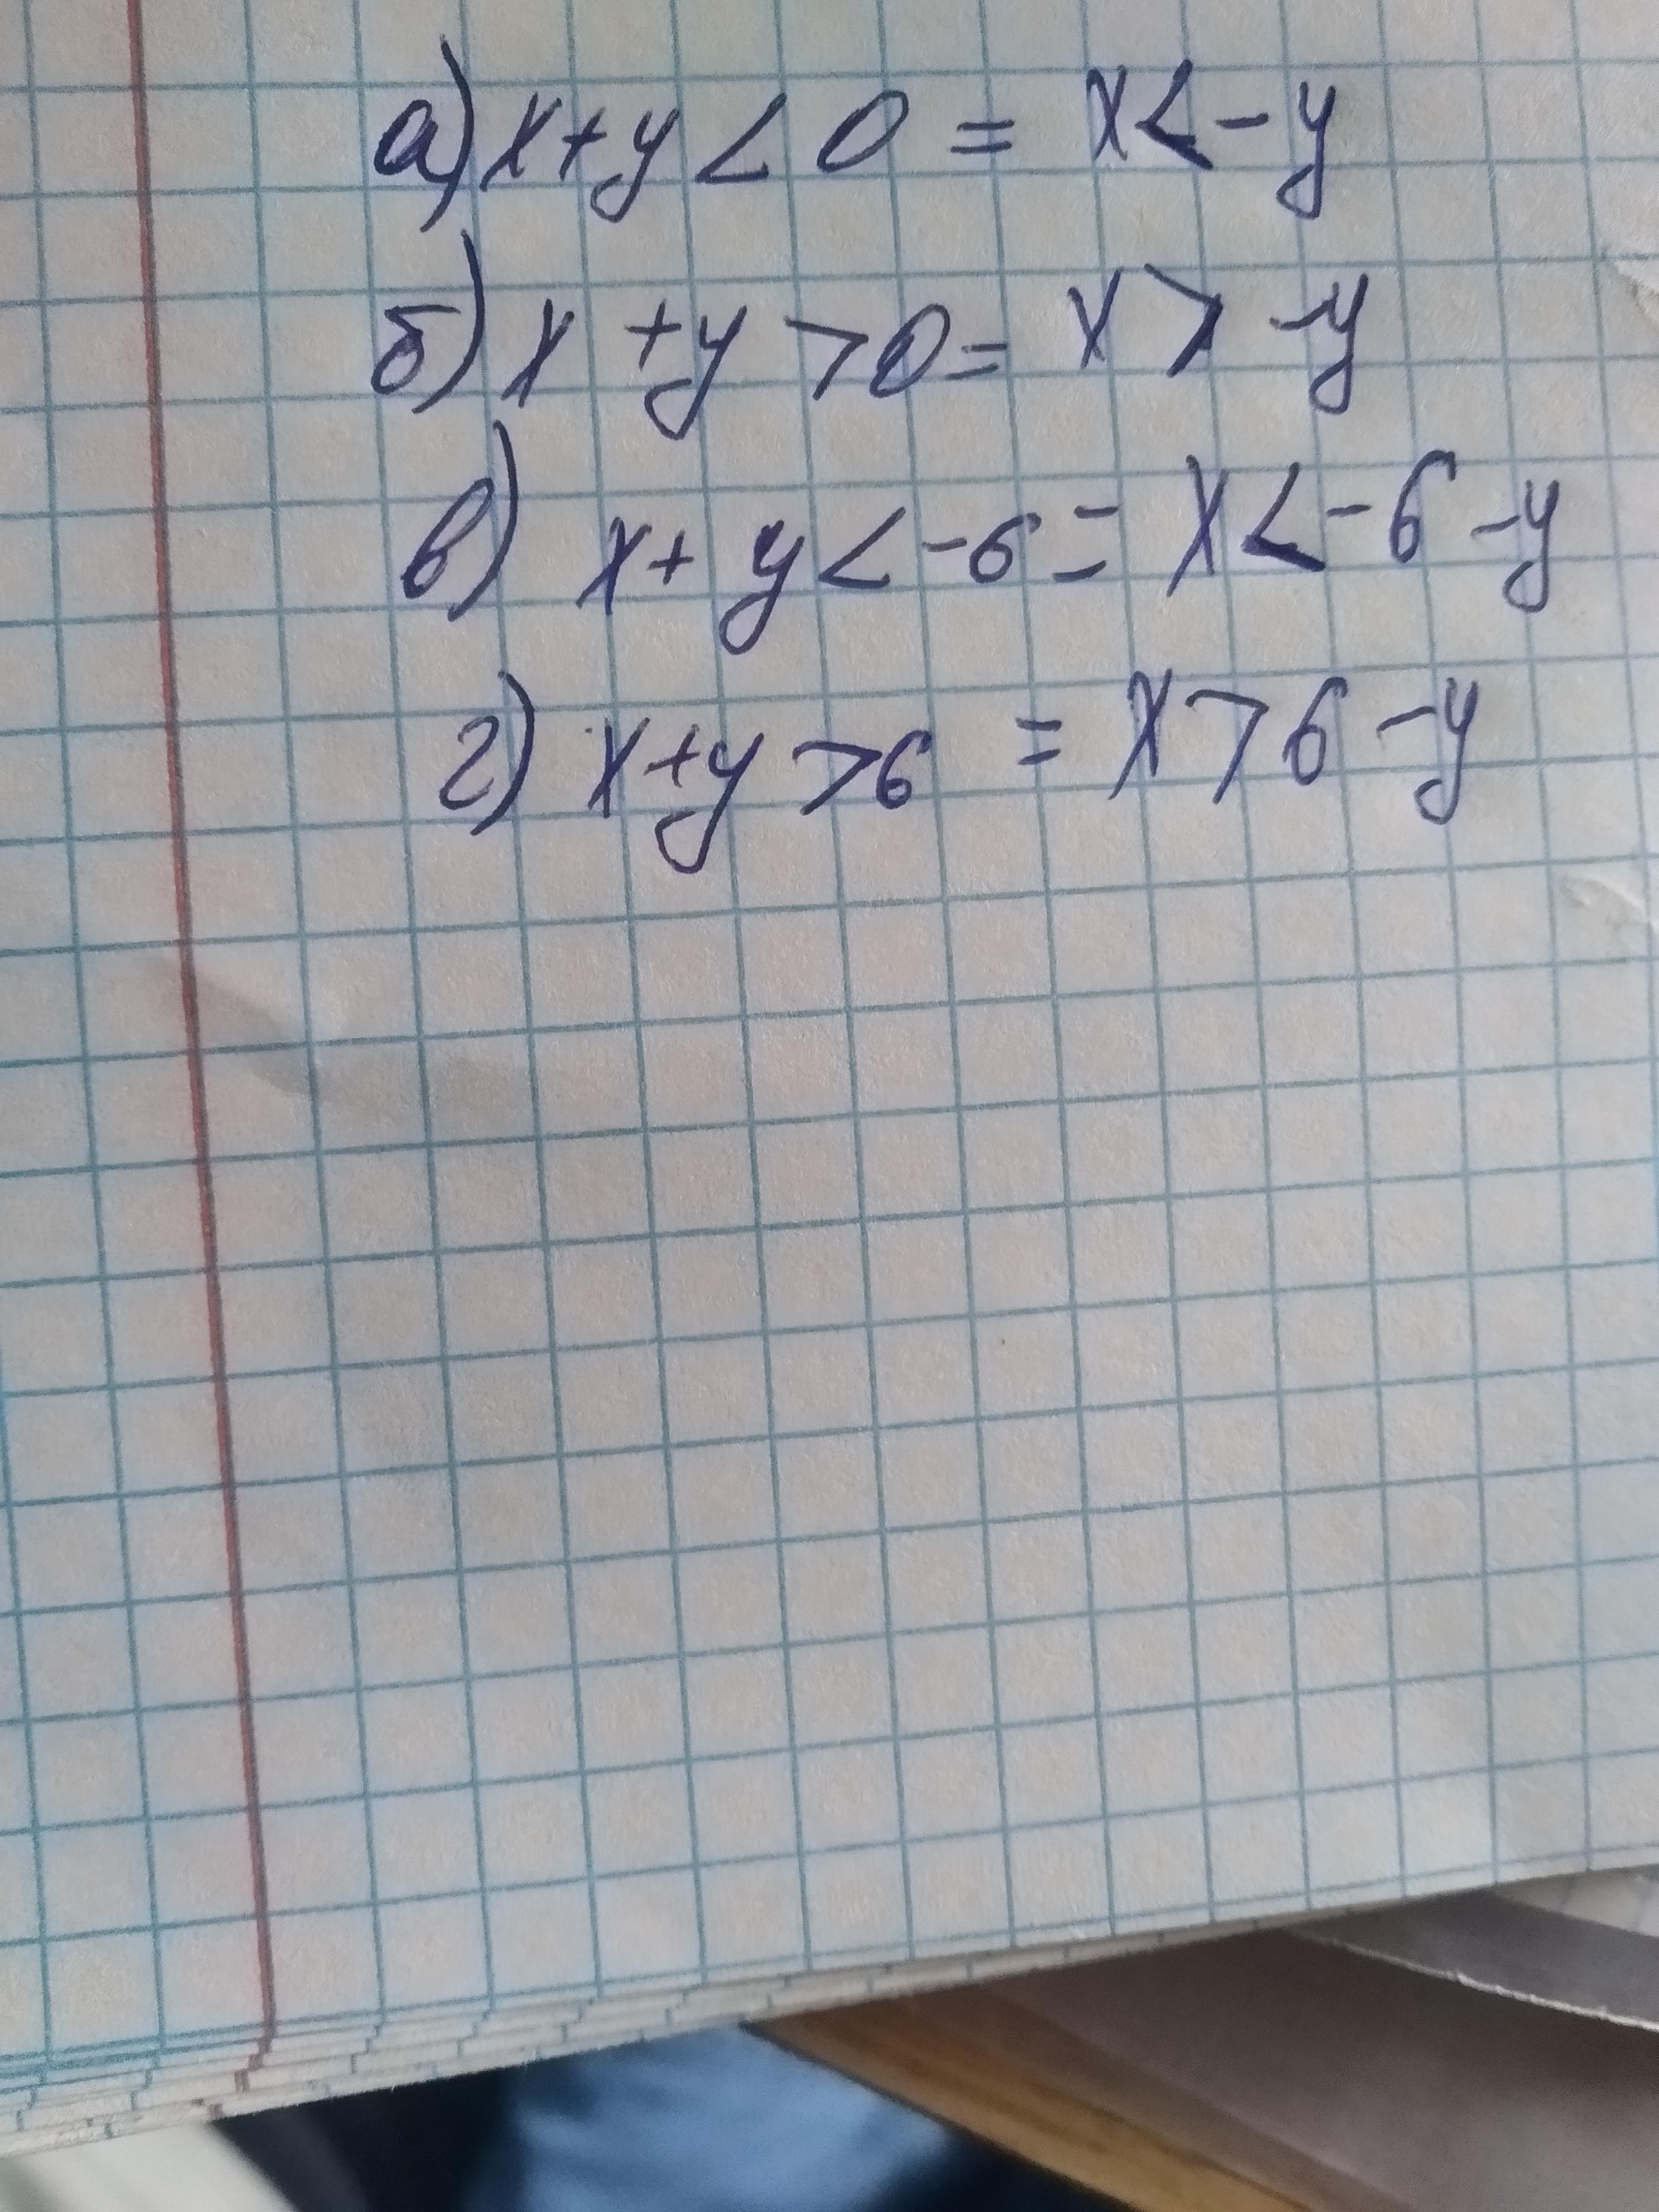 а) x+y < 0 = x < -y
б) x + y > 0 = x > -y
в) x + y < -6 = x < -6 - y
г) x + y > 6 = x > 6 - y